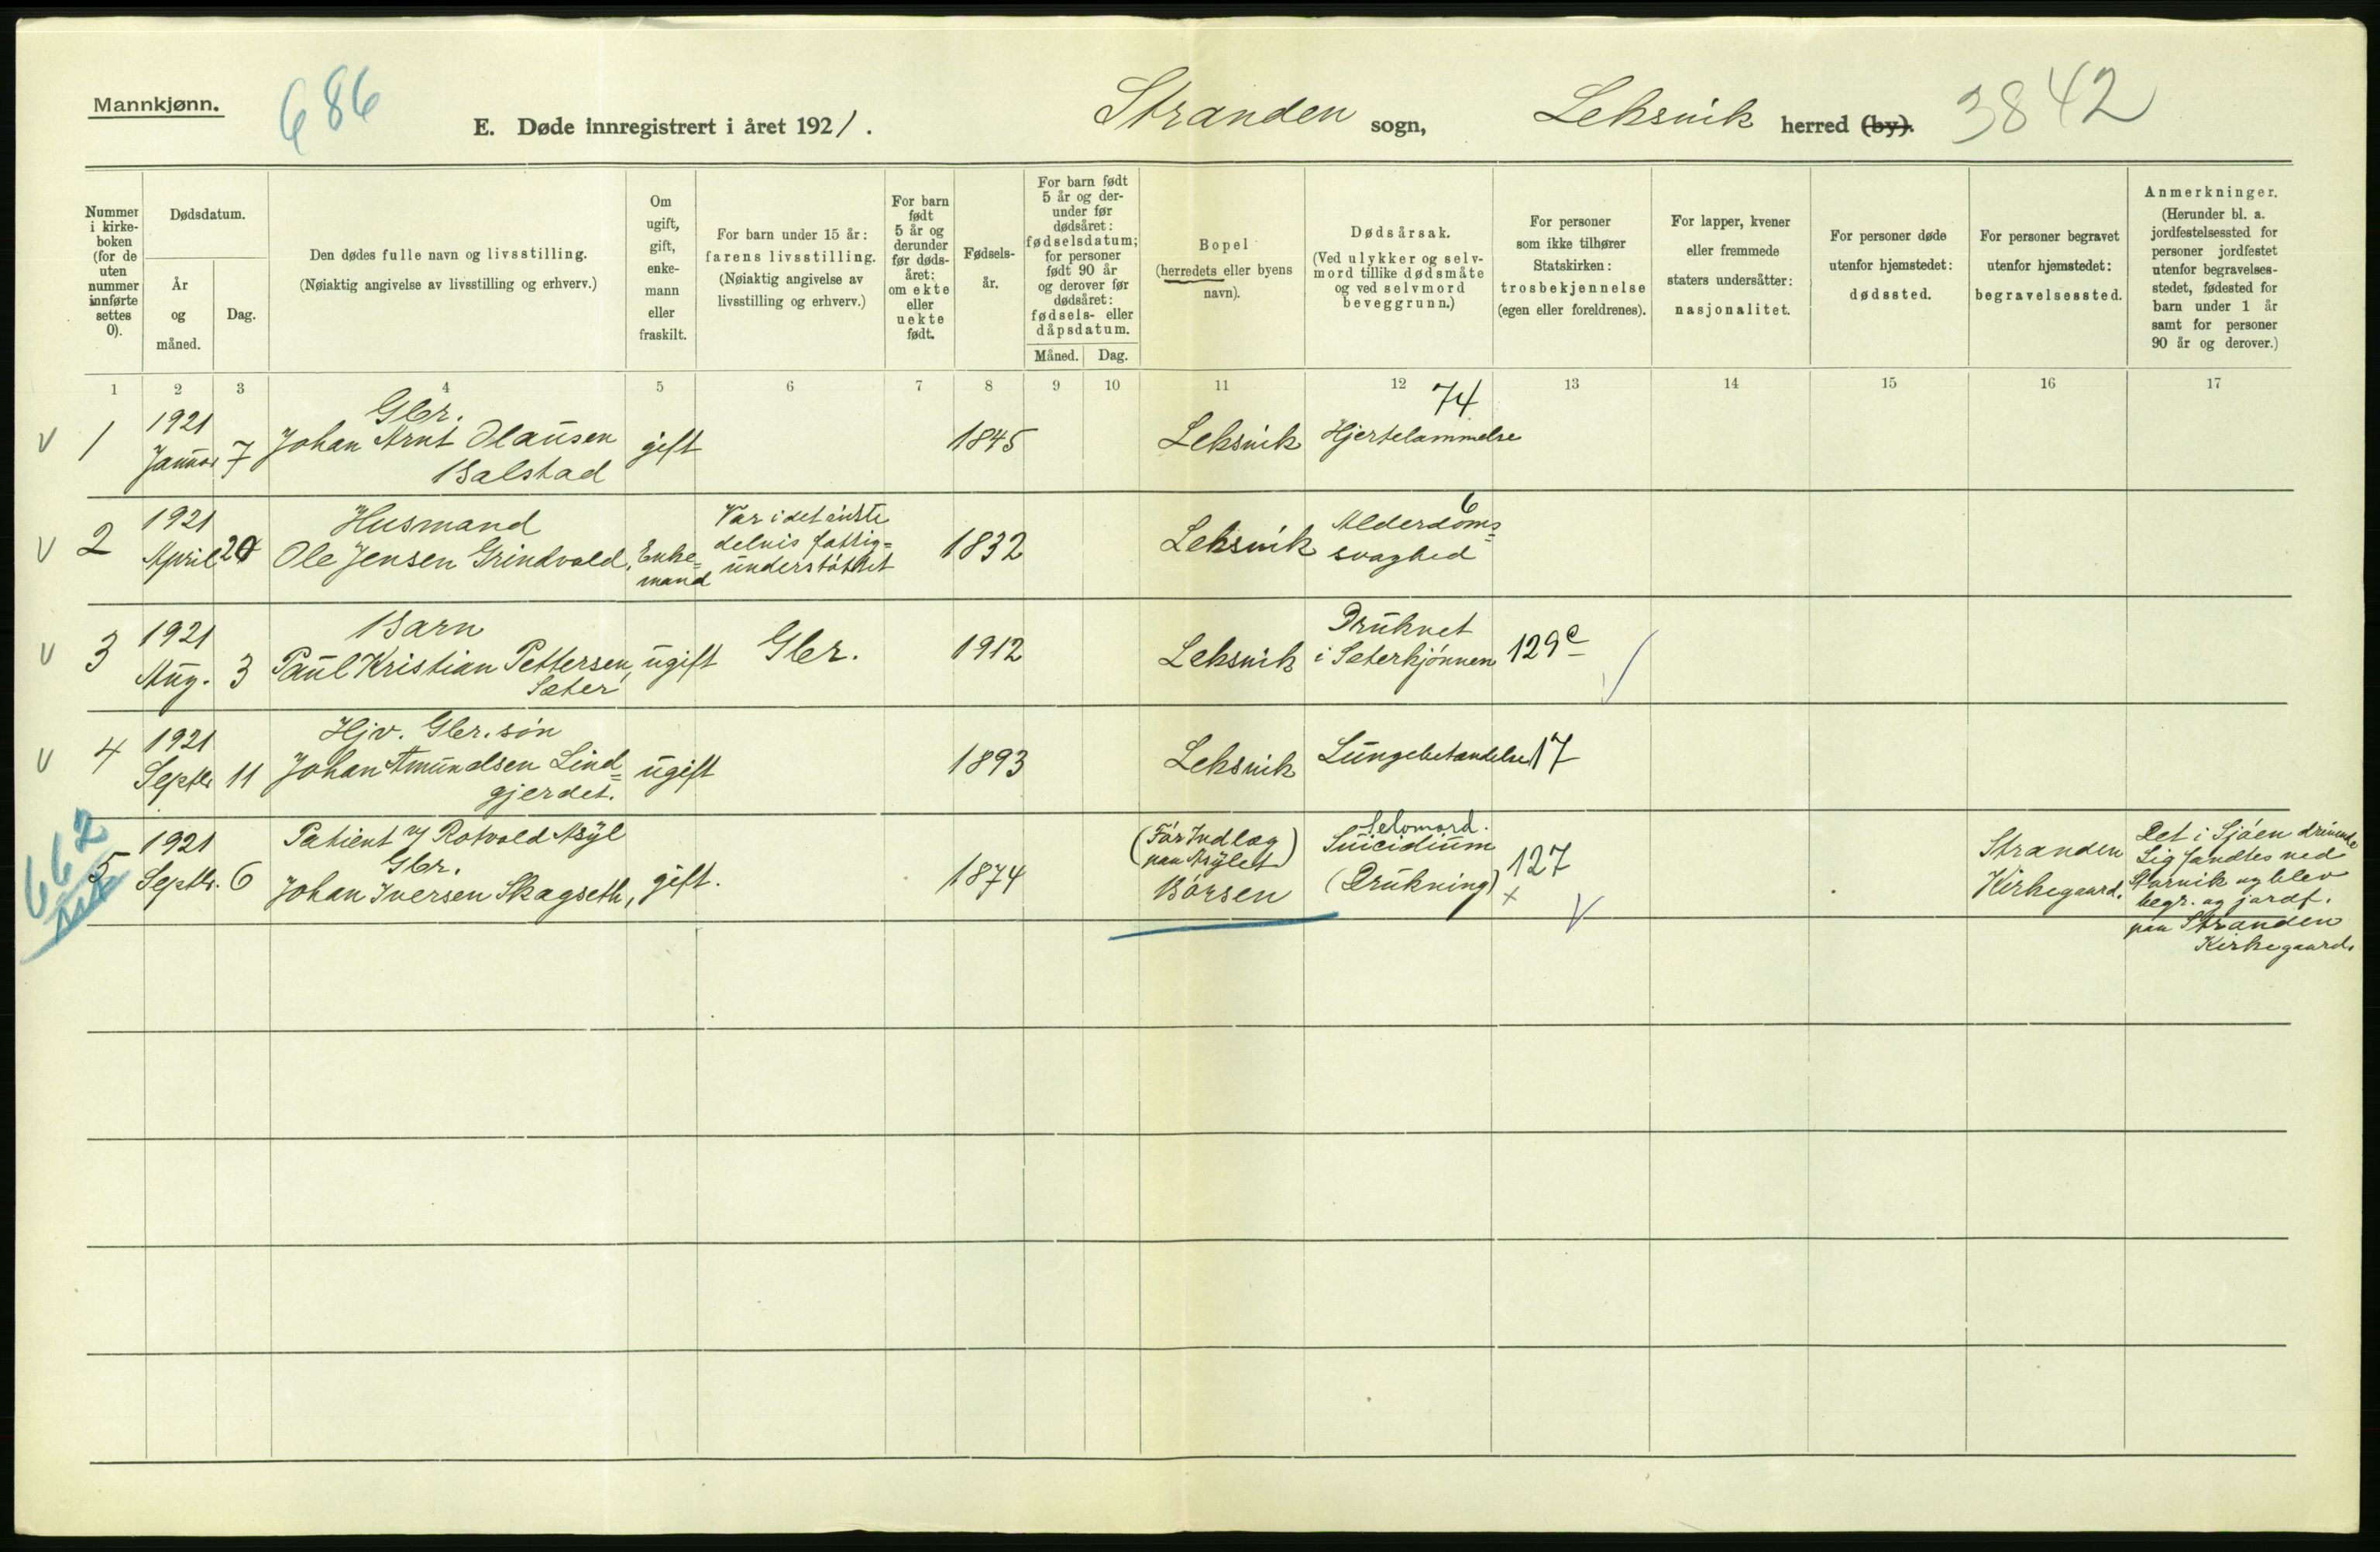 Mannkjønn.
686
E. Døde innregistrert i året 1921.
Stranden sogn,
Leksvik herred (by).
3842
Nummer i kirke-boken (for de uten nummer innførte settes 0).
Dødsdatum.
År og måned.
Dag.
Den dødes fulle navn og livsstilling.
(Nøiaktig angivelse av livsstilling og erhverv.)
Om ugift, gift, enke-mann eller fraskilt.
For barn under 15 år: farens livsstilling.
(Nøiaktig angivelse av livsstilling og erhverv.)
For barn født 5 år og derunder før døds-året: om ekte eller uekte født.
Fødsels-år.
For barn født 5 år og der-under før dødsåret: fødselsdatum; for personer født 90 år og derover før dødsåret: fødsels- eller dåpsdatum.
Måned.
Dag.
Bopel
(herredets eller byens navn).
Dødsårsak.
(Ved ulykker og selv-mord tillike dødsmåte og ved selvmord beveggrunn.)
For personer som ikke tilhører Statskirken: trosbekjennelse (egen eller foreldrenes).
For lapper, kvener eller fremmede staters undersåtter: nasjonalitet.
For personer døde utenfor hjemstedet: dødssted.
For personer begravet utenfor hjemstedet: begravelsessted.
Anmerkninger.
(Herunder bl. a. jordfestelsessted for personer jordfestet utenfor begravelses-stedet, fødested for barn under 1 år samt for personer 90 år og derover.)
1 2 3 4 5 6 7 8 9 10 11 12 13 14 15 16 17
V 1
1921
Januar 7
Gbr.
Johan Arnt Olausen
Balstad
gift
1845
Leksvik
74
Hjertelammelse
V 2
1921
April 20
Husmand
Ole Jensen Grindvold,
Enke=
mand
Var i det sidste
delvis fattig=
understøttet
1832
Leksvik
6
Alderdoms=
svaghed
V 3
1921
Aug. 3
Barn
Paul Kristian Pettersen,
Sæter
ugift
Gbr.
1912
Leksvik
Druknet
i Sæterkjønnen
129c
V 4
1921
Septbr 11
Hjv. Gbr. søn
Johan Amundsen Lind=
gjerdet.
ugift
1893
Leksvik
Lungebetændelse 17
662
5
1921
Septbr. 6
Patient v/ Rotvold Asyl
Gbr.
Johan Iversen Skagseth,
gift.
1874
(Før Indlæg
paa Asylet)
Børsen
Selvmord.
Suicidium
(Drukning)
127
x
V
Stranden
Kirkegaard.
Det i Sjøen drivende
Lig fandtes ved
Storvik og blev
begr. og jordf.
paa Stranden
Kirkegaard.